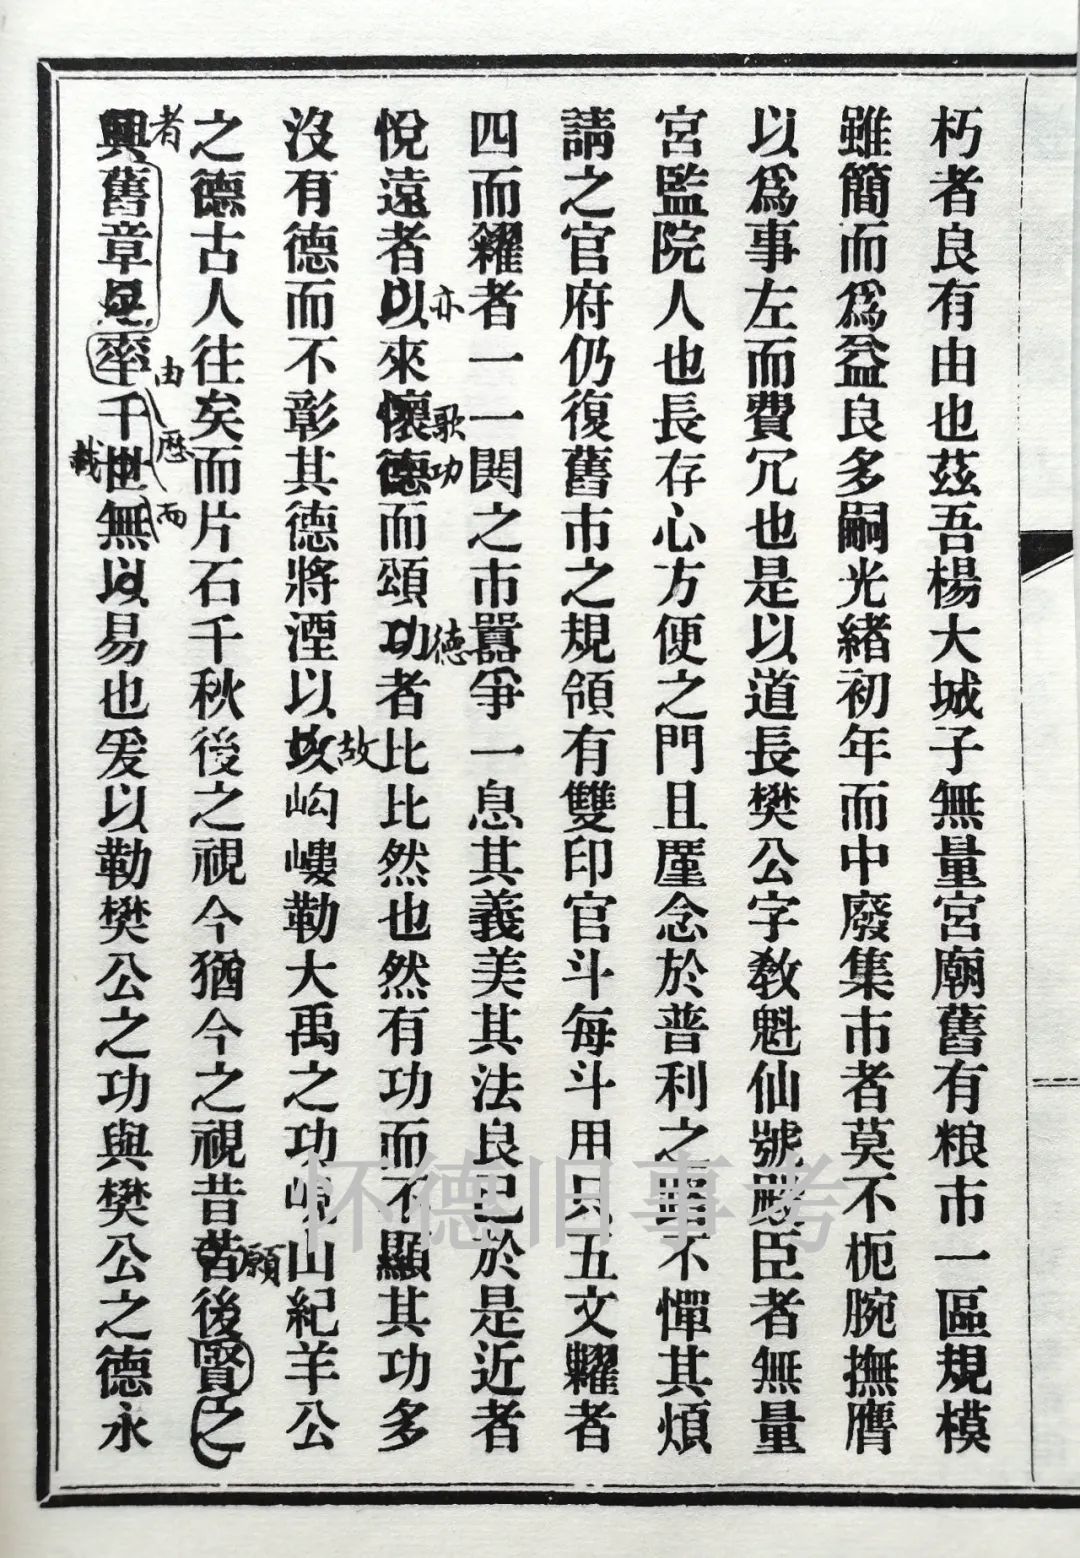 朽者良有由也茲吾楊大城子無量宮廟舊有粮市一區規模
雖簡而爲益良多嗣光緒初年而中廢集市者莫不枙腕撫膺
以爲事左而費冗也是以道長樊公字教魁仙號嚴臣者無量
宮監院人也長存心方便之門且廑念於普利之器不憚其煩
請之官府仍復舊市之規領有雙印官斗每斗用只五文糶者
四而糴者一一関之市囂爭一息其義美其法良已於是近者
亦歌功德
悅遠者以來懷德而頌功者比比然也然有功而不顯其功多
故
沒有德而不彰其德將湮以攻岣嶁勒大禹之功峴山紀羊公
願
之德古人往矣而片石千秋後之視今猶今之視昔昔後賢之
者由歷而
興舊章是率千世無以易也爰以勒樊公之功與樊公之德永
載
怀德旧事考